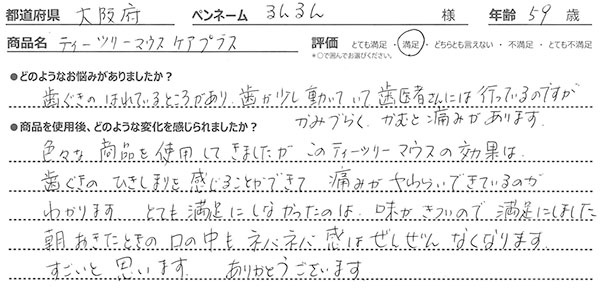 都道府県 大阪府 ペンネーム るんるん 様 年齢 59 歳
商品名 ティーツリーマウスケアプラス 評価 とても満足・満足・どちらとも言えない・不満足・とても不満足
*○で囲んでお選びください。
●どのようなお悩みがありましたか？
歯ぐきのはれているところがあり、歯が少し動いていて歯医者さんには行っているのですが
かみづらく、かむと痛みがあります。
●商品を使用後、どのような変化を感じられましたか？
色々な商品を使用してきましたがこのティーツリーマウスの効果は、
歯ぐきのひきしまりを感じることができて 痛みがやわらいできているのが
わかります とても満足にしなかったのは、味がきついので、満足にしました
朝おきたときの口の中もネバネバ感はぜしぜんなくなります。
すごいと思います。 ありがとうございます